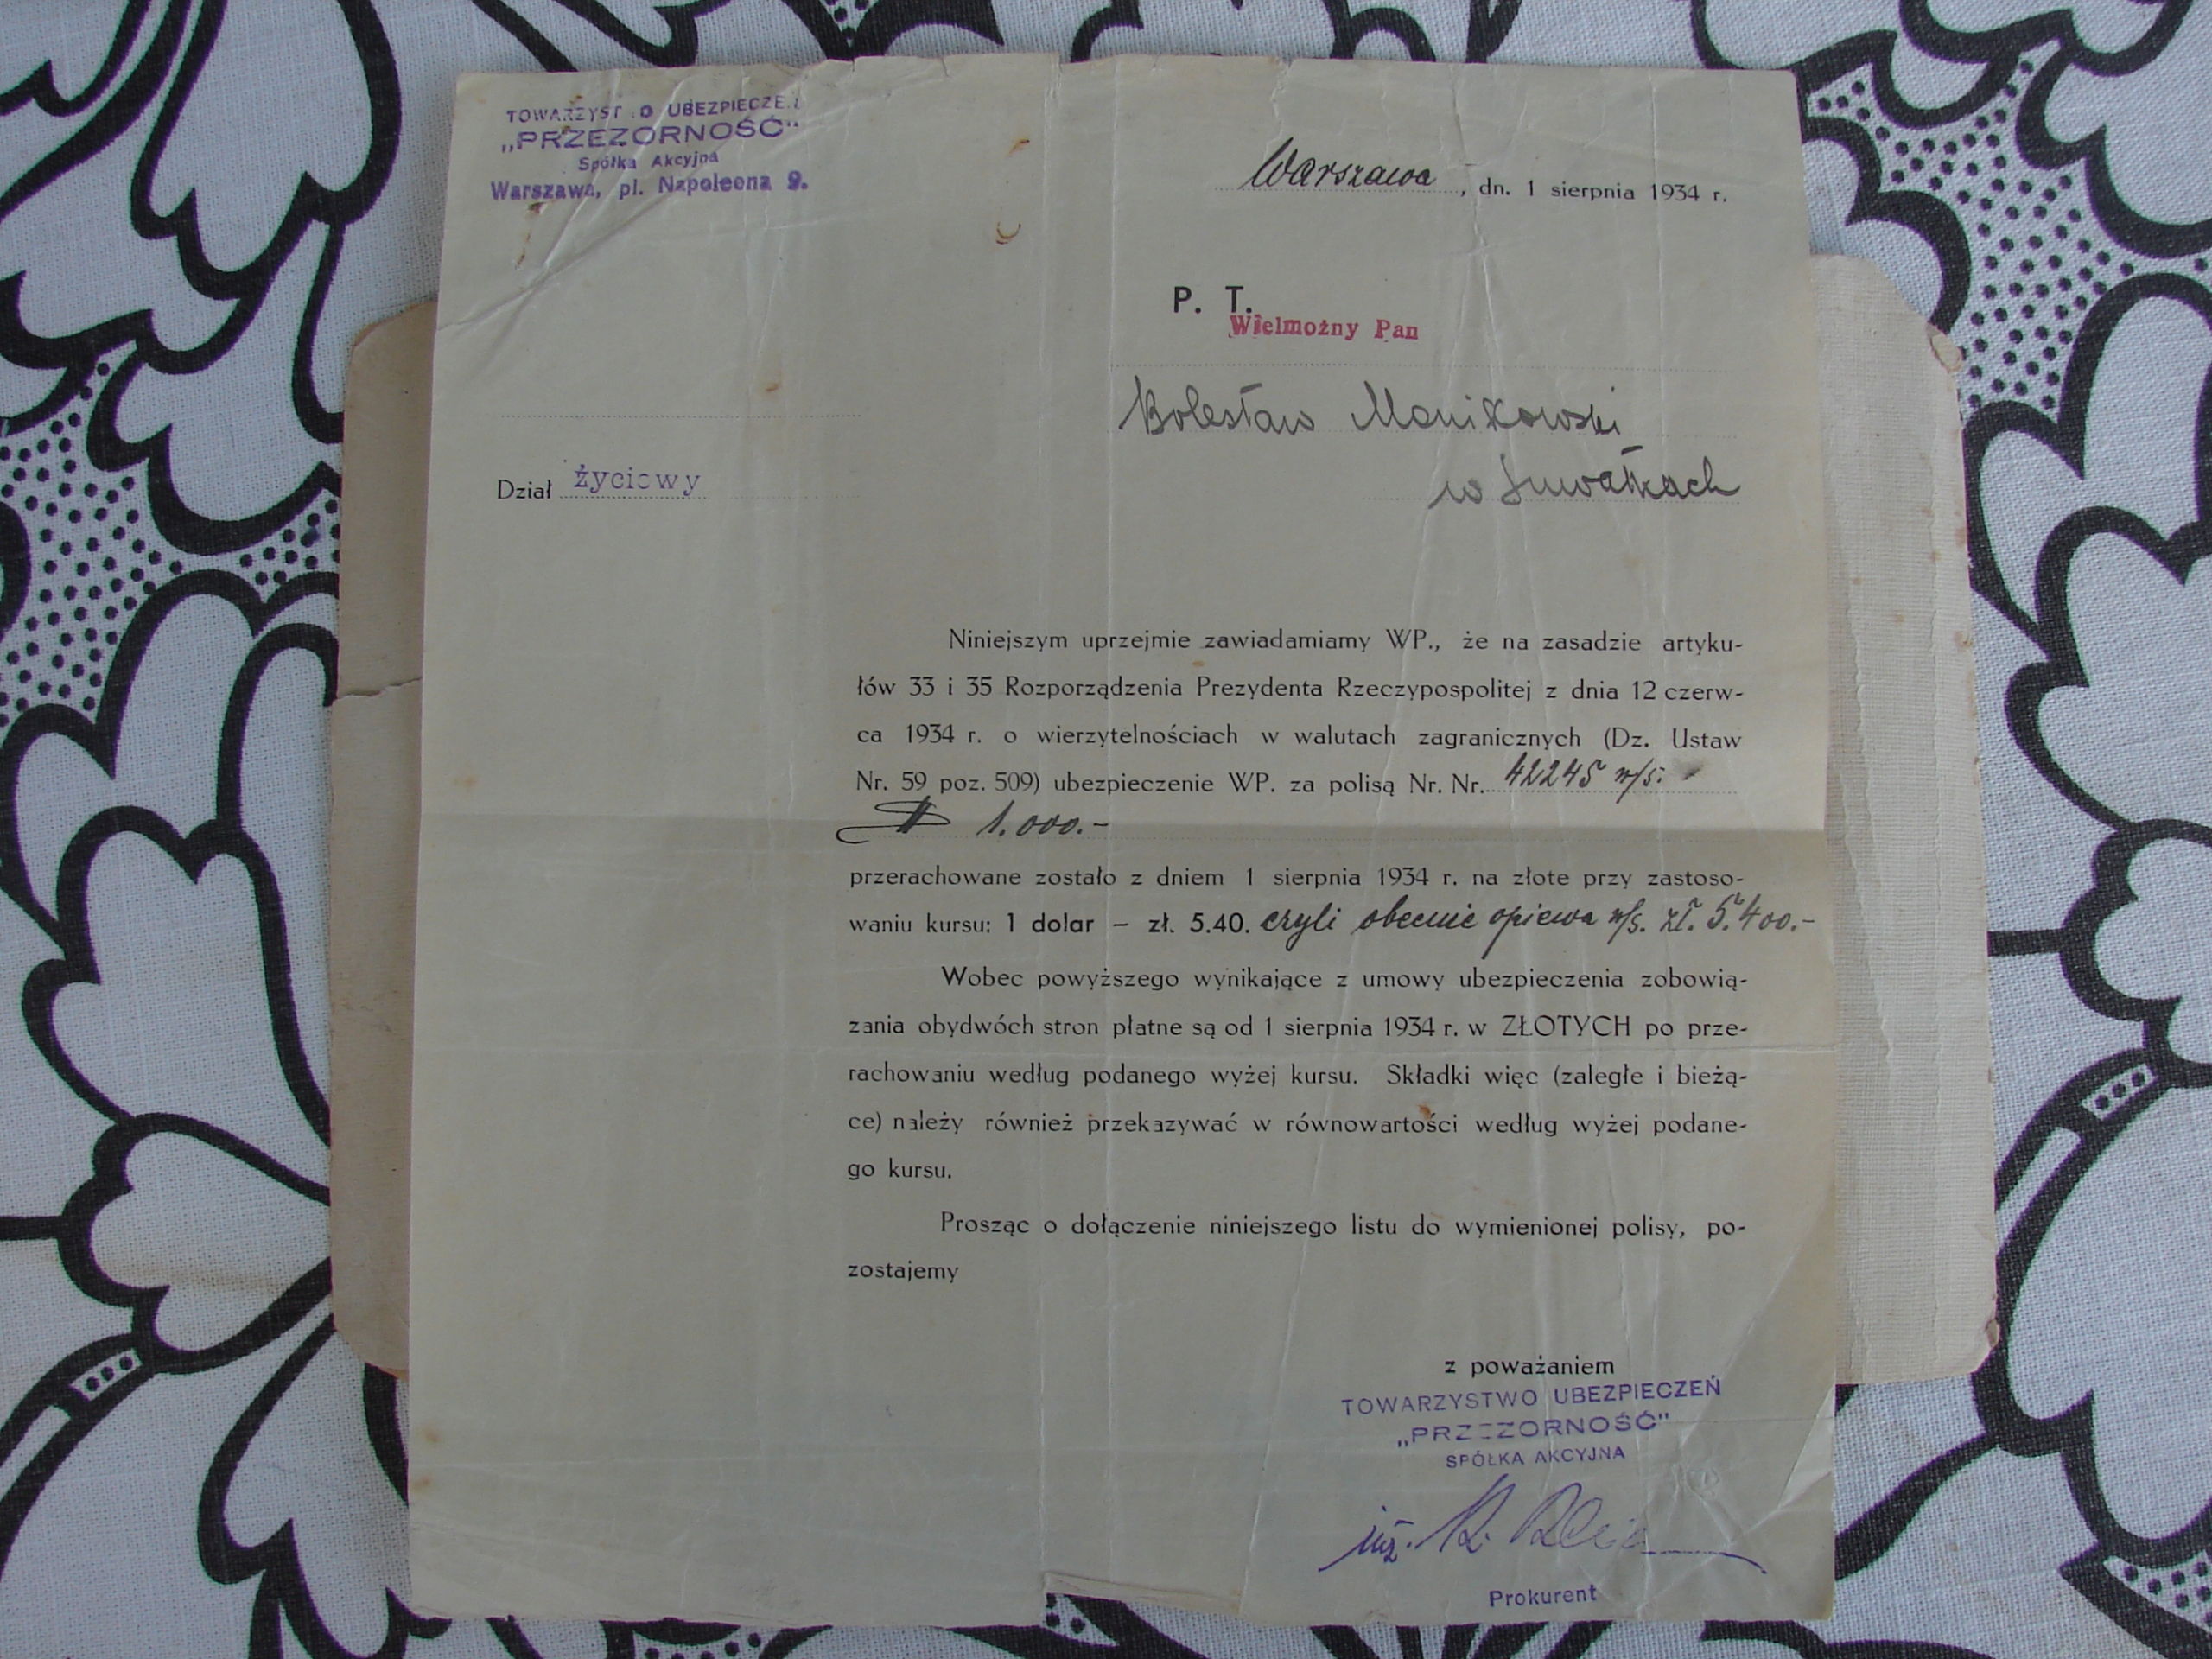 TOWARZYST O UBEZPIECZE
„PRZEZORNOŚĆ"
Spółka Akcyjna
Warszawa, pl. Napoleona 9.
Warszawa, dn. 1 sierpnia 1934 r.
P. T.
Wielmożny Pan
Bolesław Manikowski
w Suwałkach
Dział życiowy
Niniejszym uprzejmie zawiadamiamy WP., że na zasadzie artyku-
łów 33 i 35 Rozporządzenia Prezydenta Rzeczypospolitej z dnia 12 czerw-
ca 1934 r. o wierzytelnościach w walutach zagranicznych (Dz. Ustaw
Nr. 59 poz. 509) ubezpieczenie WP. za polisą Nr. Nr. 42245 n/s.
$ 1.000.-
przerachowane zostało z dniem 1 sierpnia 1934 r. na złote przy zastoso-
waniu kursu: 1 dolar – zł. 5.40. czyli obecnie opiewa n/s. zł. 5.400.-
Wobec powyższego wynikające z umowy ubezpieczenia zobowią-
zania obydwóch stron płatne są od 1 sierpnia 1934 r. w ZŁOTYCH po prze-
rachowaniu według podanego wyżej kursu. Składki więc (zaległe i bieżą-
ce) należy również przekazywać w równowartości według wyżej podane-
go kursu.
Prosząc o dołączenie niniejszego listu do wymienionej polisy, po-
zostajemy
z poważaniem
TOWARZYSTWO UBEZPIECZEŃ
„PRZEZORNOŚĆ"
SPÓŁKA AKCYJNA
inż.
Prokurent